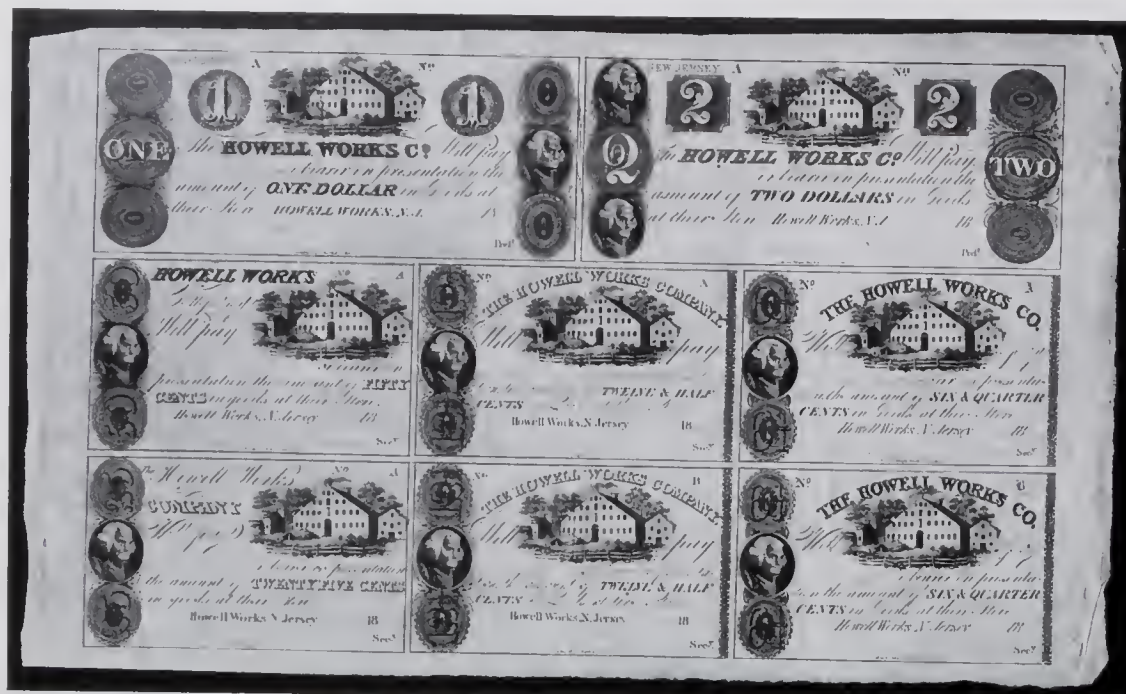 A No
1 1
ONE
The HOWELL WORKS Co. Will pay
bearer on presentation the
amount of ONE DOLLAR in Goods at
their Store HOWELL WORKS, N.J. 18
Presd.
NEW JERSEY A No
2 2
TWO
The HOWELL WORKS Co. Will pay
bearer on presentation the
amount of TWO DOLLARS in Goods
at their Store Howell Works, N.J. 18
Presd.
HOWELL WORKS No A
Will pay
presentation the amount of FIFTY
CENTS in goods at their Store
Howell Works, N. Jersey 18
Secy.
No A
THE HOWELL WORKS COMPANY
Will pay
TWELVE & HALF
CENTS
Howell Works, N. Jersey 18
Secy.
No A
THE HOWELL WORKS CO.
Will pay
presenta-
the amount of SIX & QUARTER
CENTS in Goods at their Store
Howell Works, N. Jersey 18
Secy.
The Howell Works No A
COMPANY
Will pay
bearer on presentation
the amount of TWENTY FIVE CENTS
in goods at their Store
Howell Works N. Jersey 18
Secy.
No B
THE HOWELL WORKS COMPANY
Will pay
TWELVE & HALF
CENTS
Howell Works, N. Jersey 18
Secy.
No
THE HOWELL WORKS CO.
Will pay
bearer on presenta-
the amount of SIX & QUARTER
CENTS in Goods at their Store
Howell Works, N. Jersey 18
Secy.